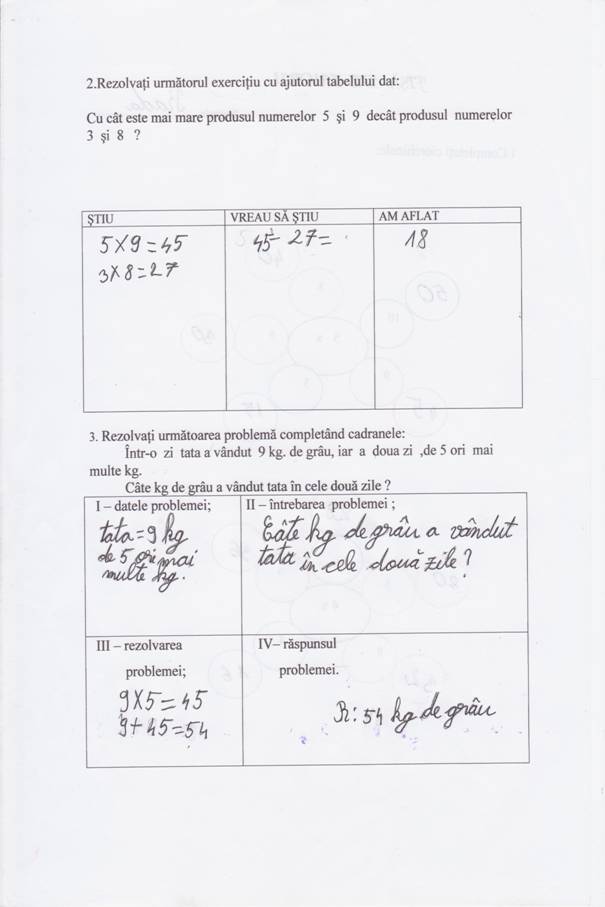 2.Rezolvați următorul exercițiu cu ajutorul tabelului dat:
Cu cât este mai mare produsul numerelor 5 și 9 decât produsul numerelor
3 și 8 ?
ȘTIU
VREAU SĂ ȘTIU
AM AFLAT
5 X 9 = 45
3 X 8 = 27
45 - 27 =
18
3. Rezolvați următoarea problemă completând cadranele:
Într-o zi tata a vândut 9 kg. de grâu, iar a doua zi ,de 5 ori mai
multe kg.
Câte kg de grâu a vândut tata în cele două zile ?
I – datele problemei;
tata = 9 kg
de 5 ori mai
multe kg.
II – întrebarea problemei ;
Câte kg de grâu a vândut
tata în cele două zile?
III – rezolvarea
problemei;
9 X 5 = 45
9 + 45 = 54
IV– răspunsul
problemei.
R: 54 kg de grâu